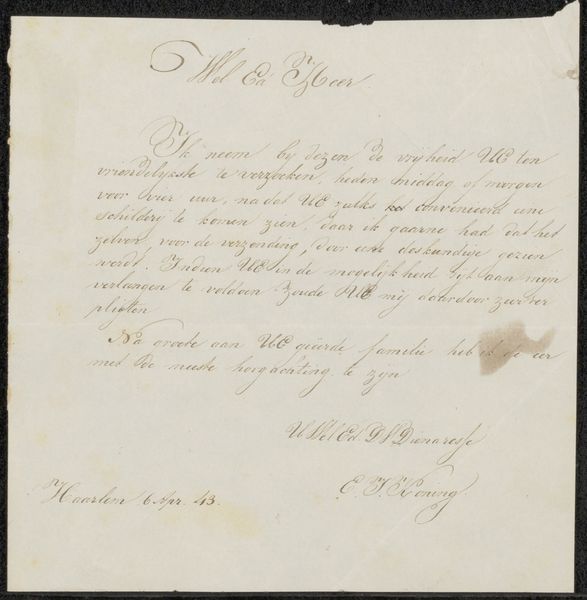 Wel Ed Heer
Ik neem by dezen de vrijheid UE ten
vriendelykste te verzoeken, heden middag of morgen
voor vier uur, na dat UE zulks convenieerd eene
schilderij te komen zien, daar ik gaarne had dat het
zelven, voor de verzending, door eene deskundige gezien
werdt. Indien UE in de mogelijkheid zyt aan mijn
verlangen te voldoen zoude UE mij daardoor zeer ver
pligten
Na groete aan UE geëerde familie heb ik de eer
met de meeste hoogachting te zijn
UWelEd DW Dienaresse
E. J. Koning.
Haarlem 6 Apr. 43.